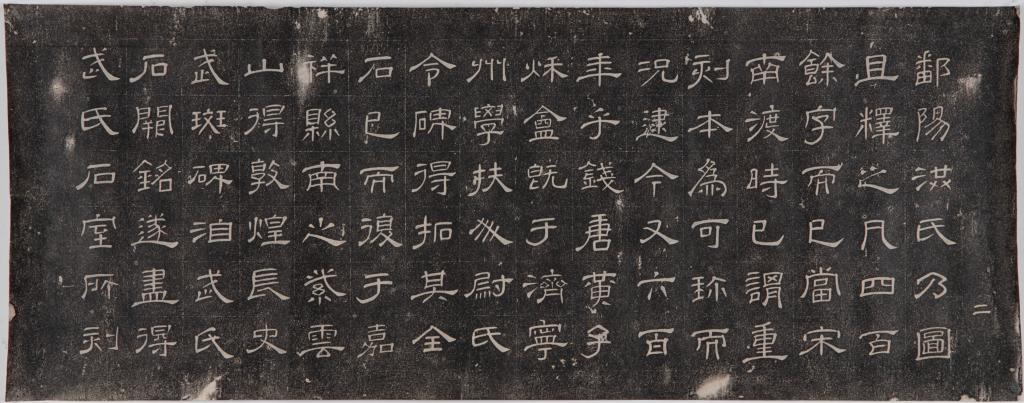 二
鄱陽洪氏乃圖
且釋之凡四百
餘字而已當宋
南渡時已謂重
刻本為可珎而
況逮今又六百
年乎錢唐黃君
秌盦既于濟寧
州學扶升尉氏
令碑得拓其全
石已而復于嘉
祥縣南之紫雲
山得敦煌長史
武斑碑洎武氏
石闕銘遂盡得
武氏石室所刻